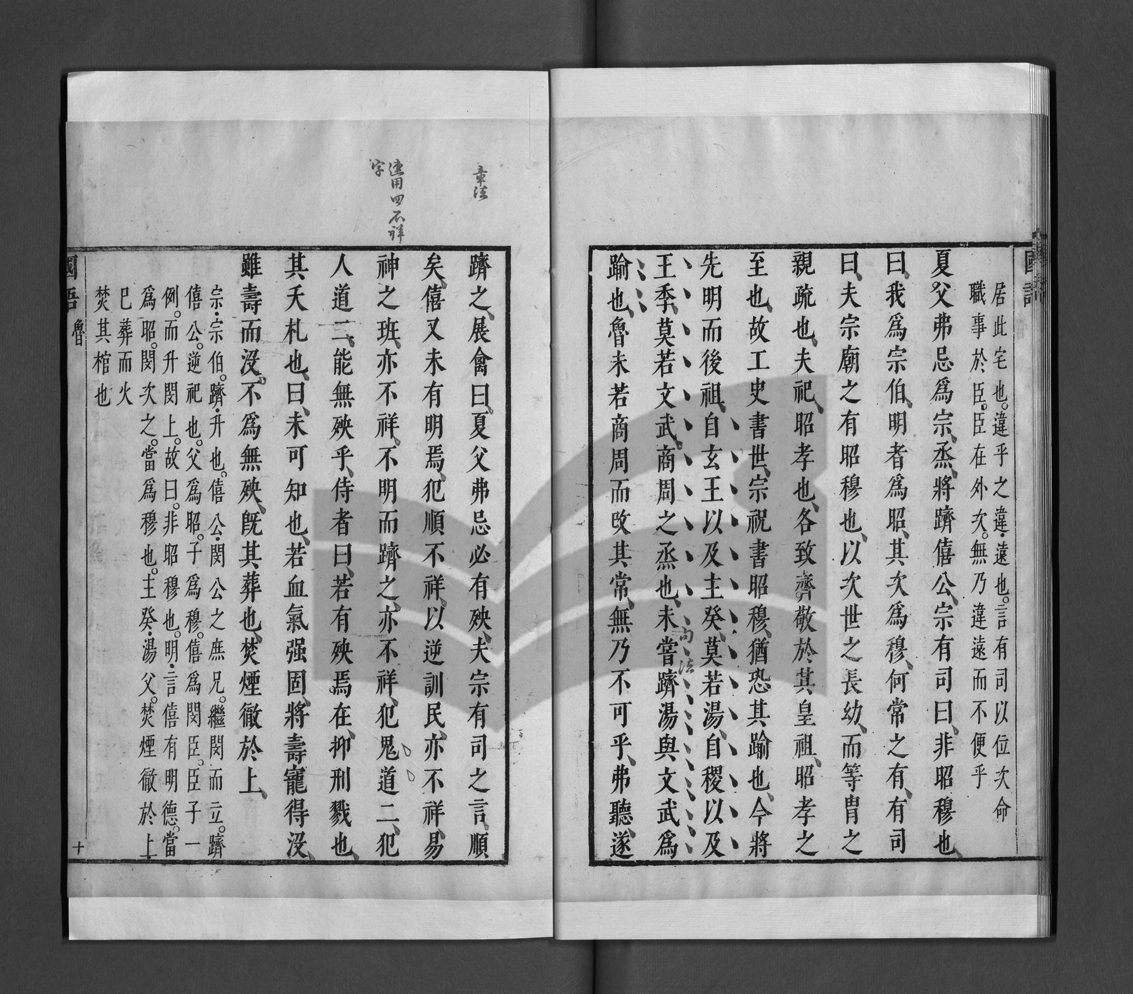 居此宅也。違乎之違·遠也。言有司以位次命
職事於臣。臣在外次。無乃違遠而不便乎
夏父弗忌爲宗、烝、將躋僖公、宗有司曰、非昭穆也、
曰、我爲宗伯、明者爲昭、其次爲穆、何常之有、有司
曰、夫宗廟之有昭穆也、以次世之長幼、而等冑之
親疏也、夫祀、昭孝也、各致齊敬於其皇祖、昭孝之
至也、故工史書世、宗祝書昭穆、猶恐其踰也、今將
先明而後祖、自玄王以及主癸、莫若湯、自稷以及
王季、莫若文武、商周之烝也、未嘗躋湯與文武、爲
踰也、魯未若商周而改其常、無乃不可乎、弗聽、遂
句法
躋之、展禽曰、夏父弗忌必有殃、夫宗有司之言、順
矣、僖又未有明焉、犯順不祥、以逆訓民、亦不祥、易
神之班、亦不祥、不明而躋之、亦不祥、犯鬼道二、犯
人道二、能無殃乎、侍者曰、若有殃焉、在、抑刑戮也、
其夭札也、曰、未可知也、若血氣强固、將壽寵得沒、
雖壽而沒、不爲無殃、旣其葬也、焚煙徹於上、
宗·宗伯。躋·升也。僖公·閔公之庶兄。繼閔而立。躋
僖公。逆祀也。父爲昭。子爲穆。僖爲閔臣。臣子一
例。而升閔上。故曰。非昭穆也。明·言僖有明德。當
爲昭。閔次之。當爲穆也。主癸·湯父。焚煙徹於上
巳葬而火
焚其棺也
章法
連用四不祥
字
國語
國語 魯
十